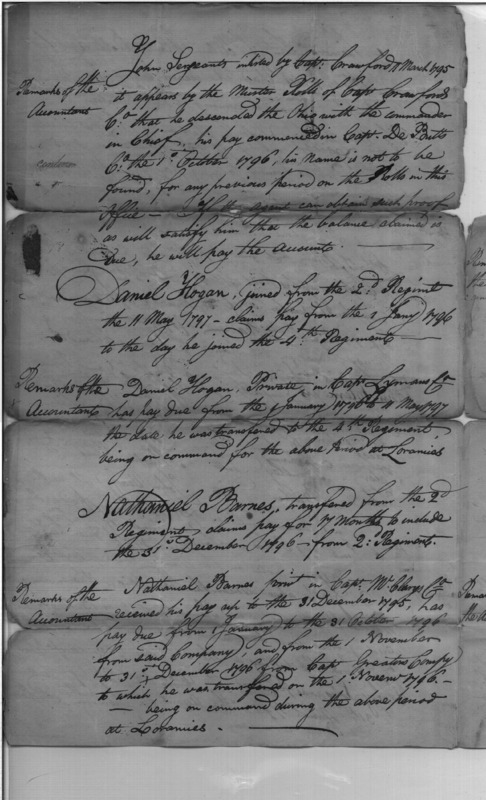 John Sergeants inlisted by Capt. Crawford 11 March 1795
Remarks of the
Accountant
it appears by the Muster Rolls of Capt Crawfords
Co. that he descended the Ohio with the commander
in Chief, his pay commenced in Capt. De Butts
Co. the 1st October 1796, his name is not to be
found, for any previous period on the Rolls in this
office — If the agent can obtain such proof
as will satisfy him that the balance claimed is
Due, he will pay the Accounts.
Daniel Hogan, joined from the 2d Regiment
the 11 May 1797 — claims pay from the 1 Jany 1796
to the day he joined the 4th Regiment
Remarks of the
Accountant
Daniel Hogan, Private in Capt Lymans Co
has pay due from the 1 January 1796 to 11 May 1797
the date he was transfered to the 4th Regiment
being on command for the above Period at Loramies
Nathaniel Barnes, transfered from the 2d
Regiment claims pay for 17 Months to include
the 31st December 1796 — from 2d Regiment.
Remarks of the
Accountant
Nathaniel Barnes in Capt. McClarys Co
received his pay up to the 31 December 1795, has
pay due from 1 January to the 31 October 1796
from said Company, and from the 1 November
to 31st December 1796 from Capt Greatons Compy
to which he was transfered on the 1 Novemr 1796 —
— being on command during the above period
at Loramies.